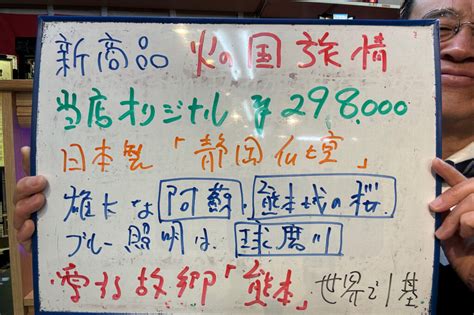 新商品 火の国旅情
当店オリジナル ¥298,000
日本製「静岡仏壇」
雄大な 阿蘇、熊本城の桜、
ブルー照明は、球磨川
愛する故郷「熊本」世界で1基